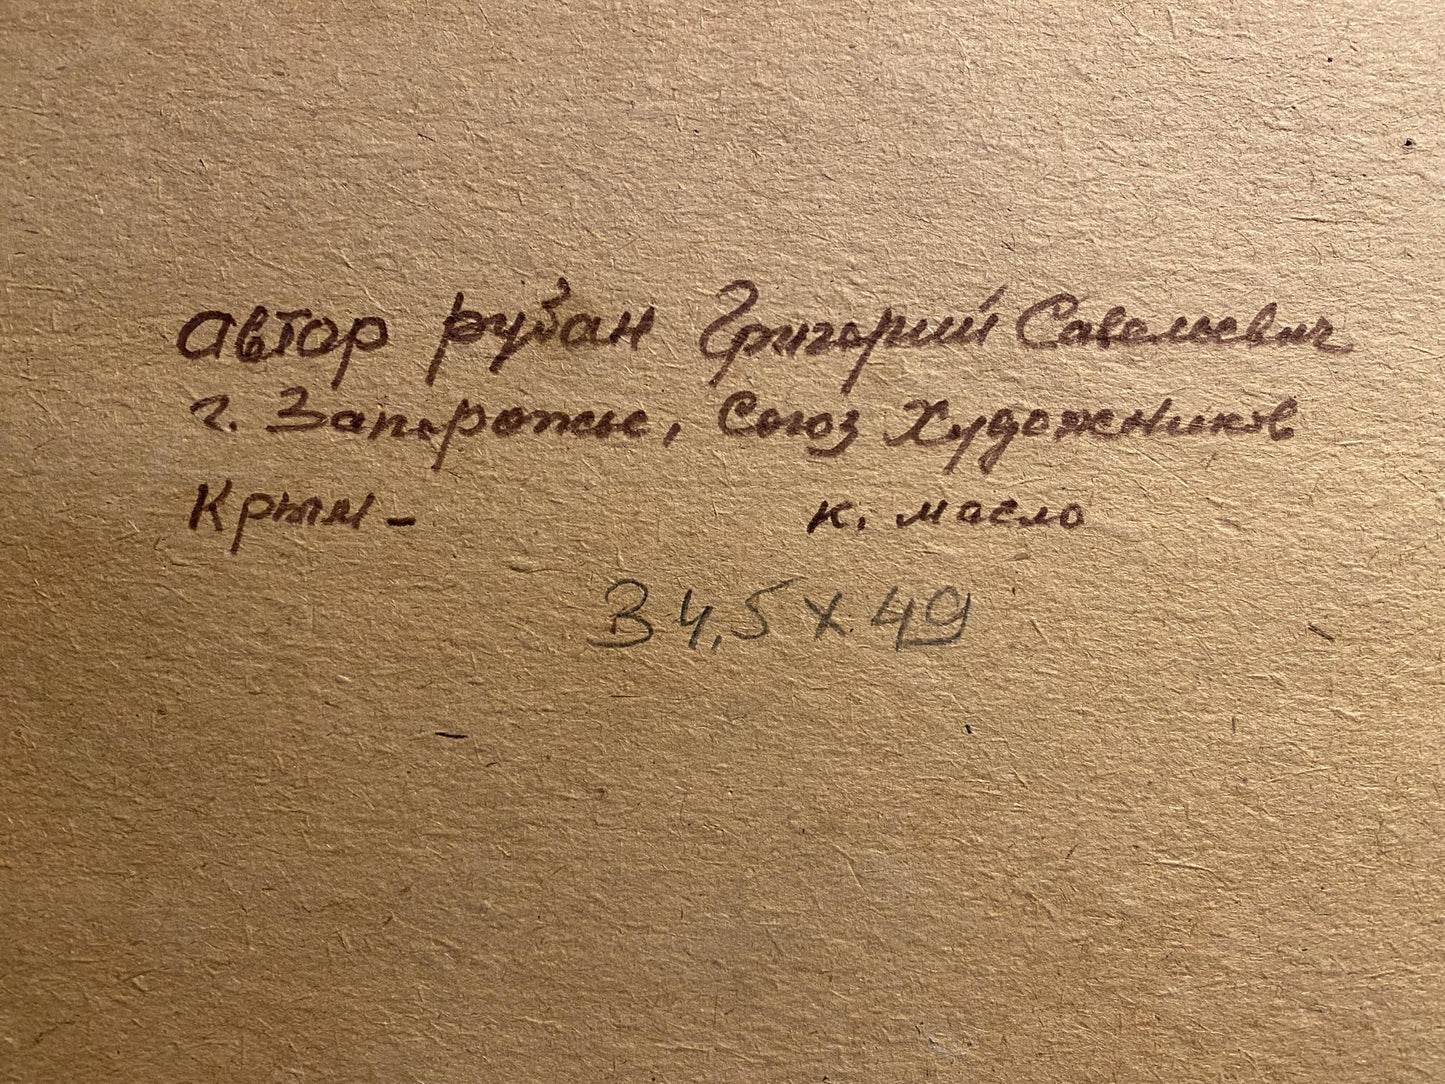 автор Рубан Григорий Савельевич
г. Запорожье, Союз Художников
Крым - к. масло
34,5 х 49